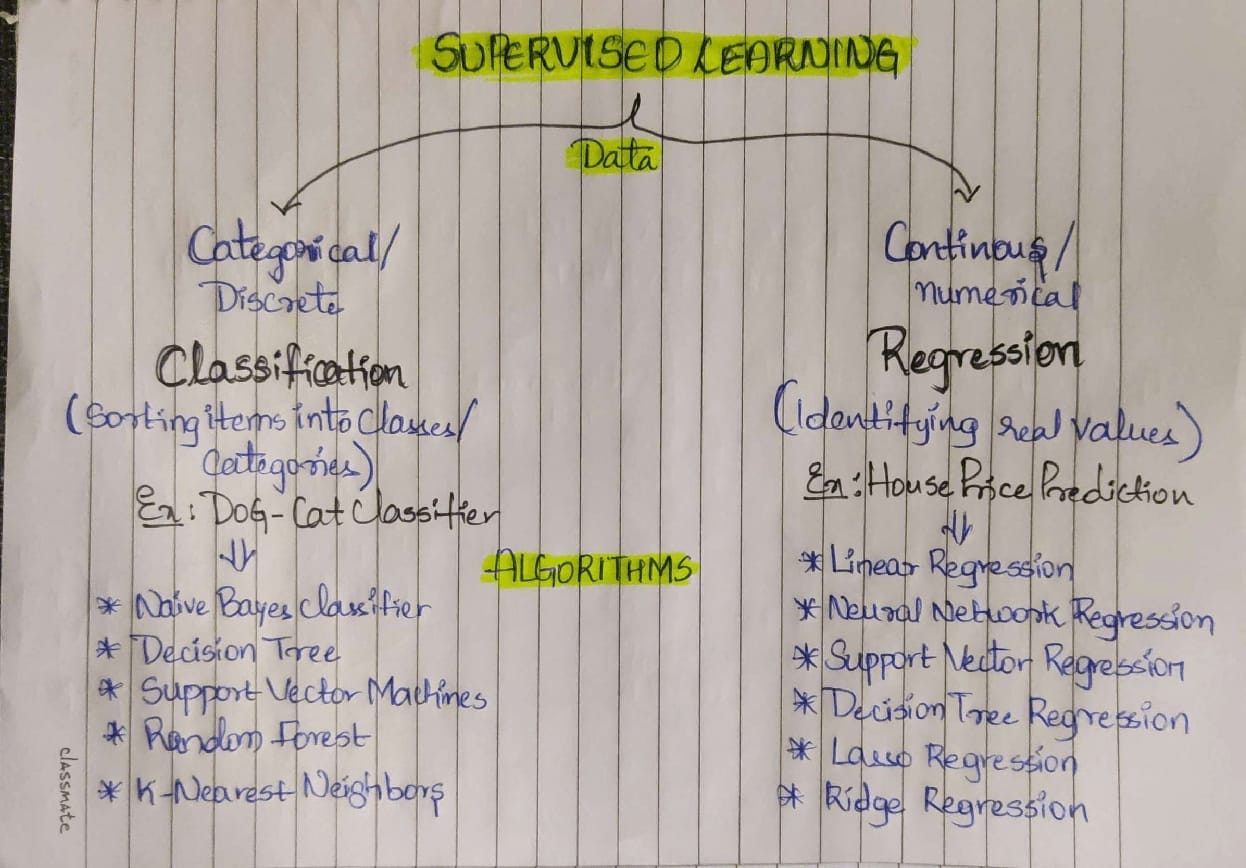 SUPERVISED LEARNING
Data
Categorical/
Discrete
Classification
(Sorting items into Classes/
Categories)
Ex: DOG-Cat Classifier
Continous/
numerical
Regression
(Identifying real values)
Ex: House Price Prediction
ALGORITHMS
* Naive Bayes Classifier
* Decision Tree
* Support Vector Machines
* Random Forest
* K-Nearest Neighbors
* Linear Regression
* Neural Network Regression
* Support Vector Regression
* Decision Tree Regression
* Lasso Regression
* Ridge Regression
classmate